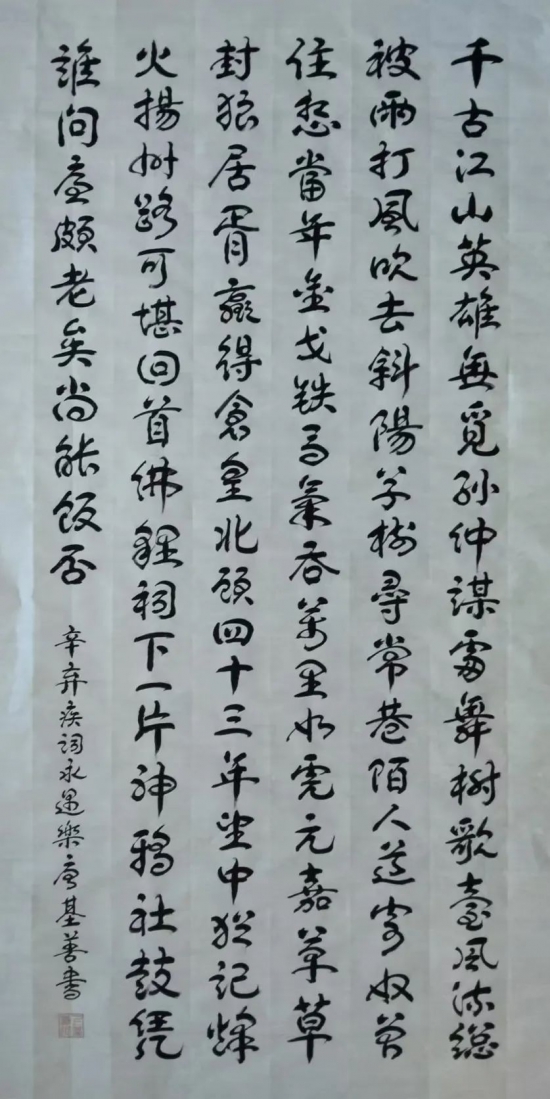 千古江山英雄無覓孫仲謀處舞榭歌臺風流總
被雨打風吹去斜陽草樹尋常巷陌人道寄奴曾
住想當年金戈鐵馬氣吞萬里如虎元嘉草草
封狼居胥贏得倉皇北顧四十三年望中猶記烽
火揚州路可堪回首佛貍祠下一片神鴉社鼓憑
誰問廉頗老矣尚能飯否
辛弃疾詞永遇樂唐基善書